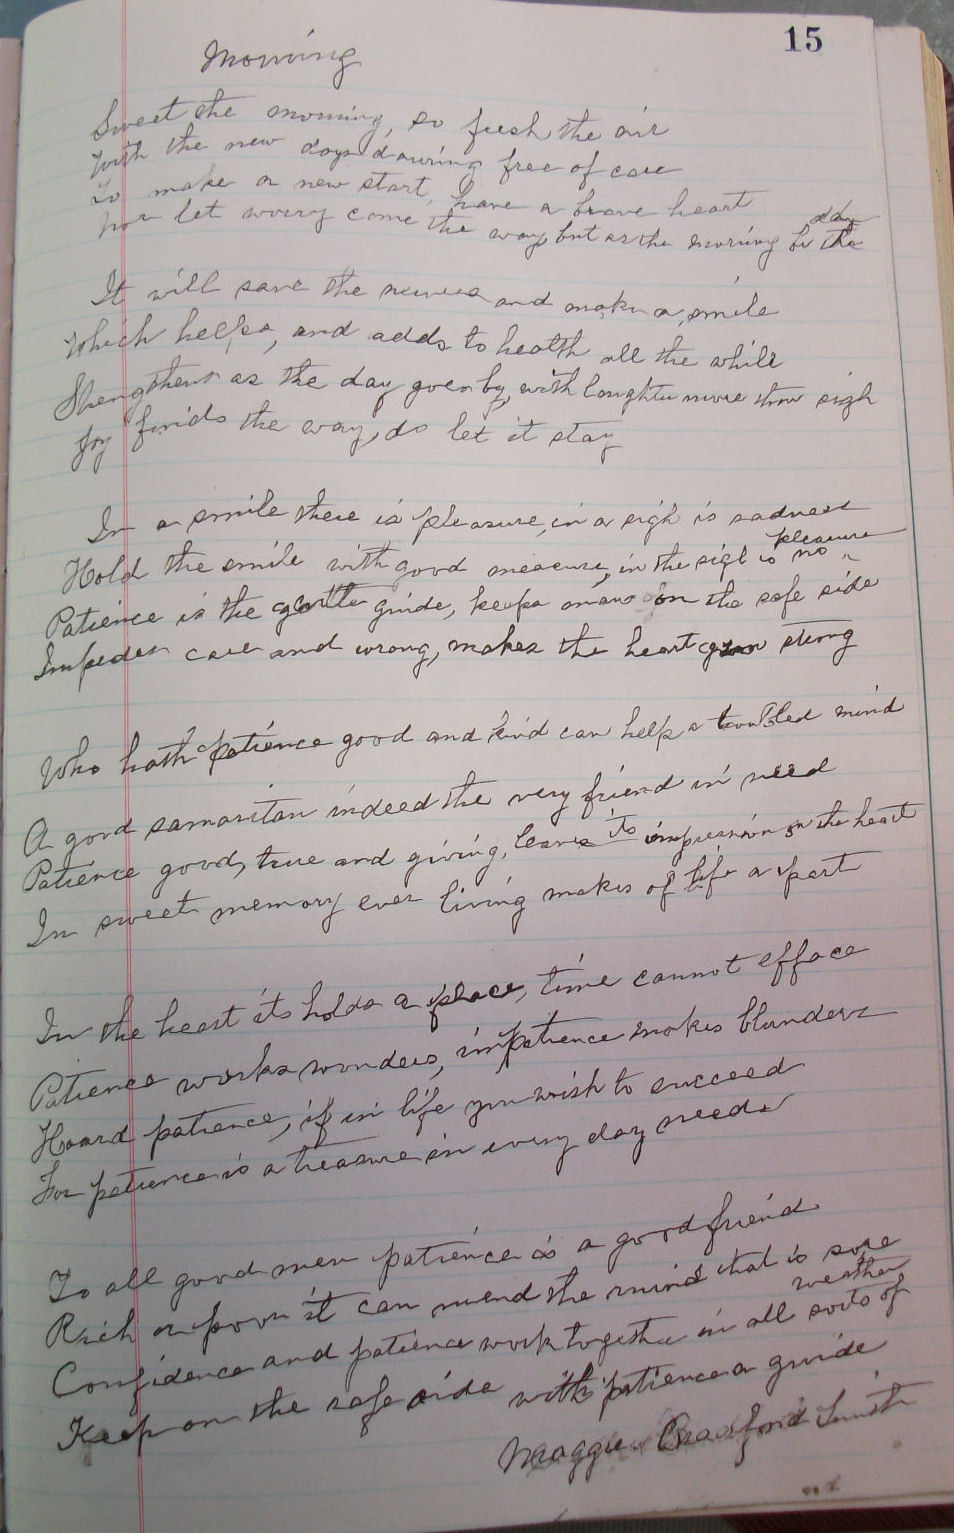 15
Morning
Sweet the morning, so fresh the air
With the new days dawning free of care
To make a new start, have a brave heart
Nor let worry come the way, but as the morning be the day
It will save the nerves and make a smile
Which helps, and adds to health all the while
Strengthens as the day goes by, with laughter more than sigh
Joy finds the way, do let it stay
In a smile there is pleasure, in a sigh is sadness
Hold the smile with good measure, in the sigh is no pleasure
Patience is the gentle guide, keeps man on the safe side
Impedes care and wrong, makes the heart grow strong
Who hath patience good and kind can help a troubled mind
A good samaritan indeed the very friend in need
Patience good, true and giving, leaves its impression on the heart
In sweet memory ever living makes of life a part
In the heart its holds a place, time cannot efface
Patience works wonders, impatience makes blunders
Hoard patience, if in life you wish to succeed
For patience is a treasure in every day needs
To all good men patience is a good friend
Rich or poor it can mend the mind that is sore
Confidence and patience work together in all sorts of weather
Keep on the safe side with patience a guide
Maggie Bradford Smith